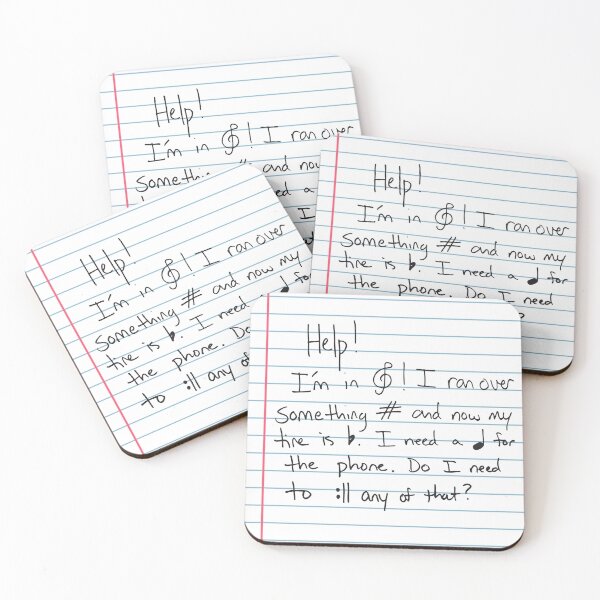 Help!
I'm in 𝄞! I ran over
Something # and now
Help!
I'm in 𝄞! I ran over
Something # and now my
tire is ♭. I need a ♩ for
the phone. Do I need
Help!
I'm in 𝄞! I ran over
Something # and now my
tire is ♭. I need a ♩ for
the phone. Do
to 𝄇 any of
Help!
I'm in 𝄞! I ran over
Something # and now my
tire is ♭. I need a ♩ for
the phone. Do I need
to 𝄇 any of that?